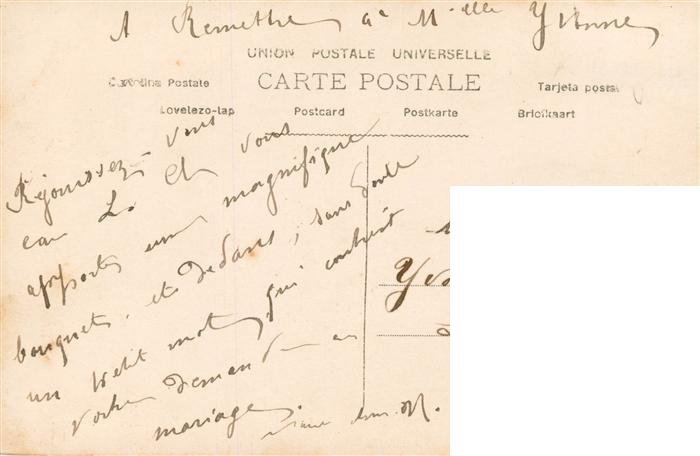 A Remettre a Melle Yvonne
UNION POSTALE UNIVERSELLE
CARTE POSTALE
Cartolina Postale
Tarjeta postal
Levelezo-lap
Postcard
Postkarte
Briefkaart
Réjouissez-vous
car L. Ch vous
apporte un magnifique
bouquet. et dedans, sans doute
un petit mot qui contient
votre demande en
mariage.
Yvo